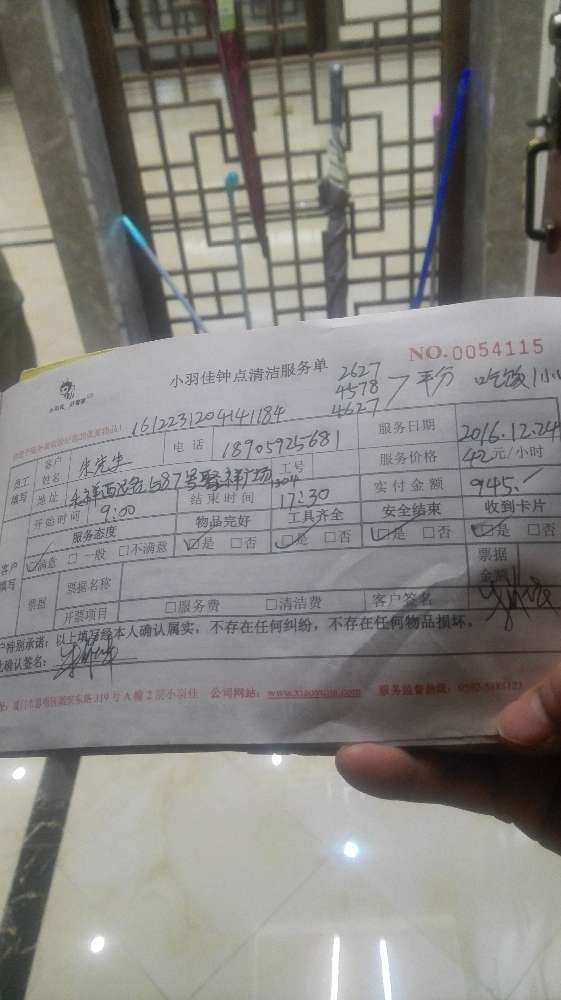 小羽佳钟点清洁服务单
NO.0054115
2627
4578
4627
平分 吃饭1小
1612231204141184
员工填写 客户姓名 朱先生 电话 18905925681 服务日期 2016.12.24
地址 587号 祥广场 工号 服务价格 42元/小时
304
开始时间 9:00 结束时间 17:30 实付金额 945.
服务态度 物品完好 工具齐全 安全结束 收到卡片
客户填写 ☑满意 □一般 □不满意 ☑是 □否 ☑是 □否 ☑是 □否 ☑是 □否
票据 票据名称 票据金额
开票项目 □服务费 □清洁费 客户签名
户特别承诺:以上填写经本人确认属实,不存在任何纠纷,不存在任何物品损坏。
此确认签名:
319号A幢2层小羽佳 公司网站:www.xiaoyujia.com 服务监督热线: